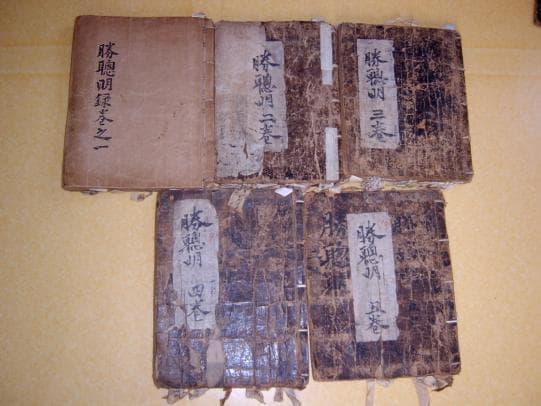 勝聰明録卷之一
勝聰明 二卷
勝聰明 三卷
勝聰明 四卷
勝聰明 五卷
勝聰明